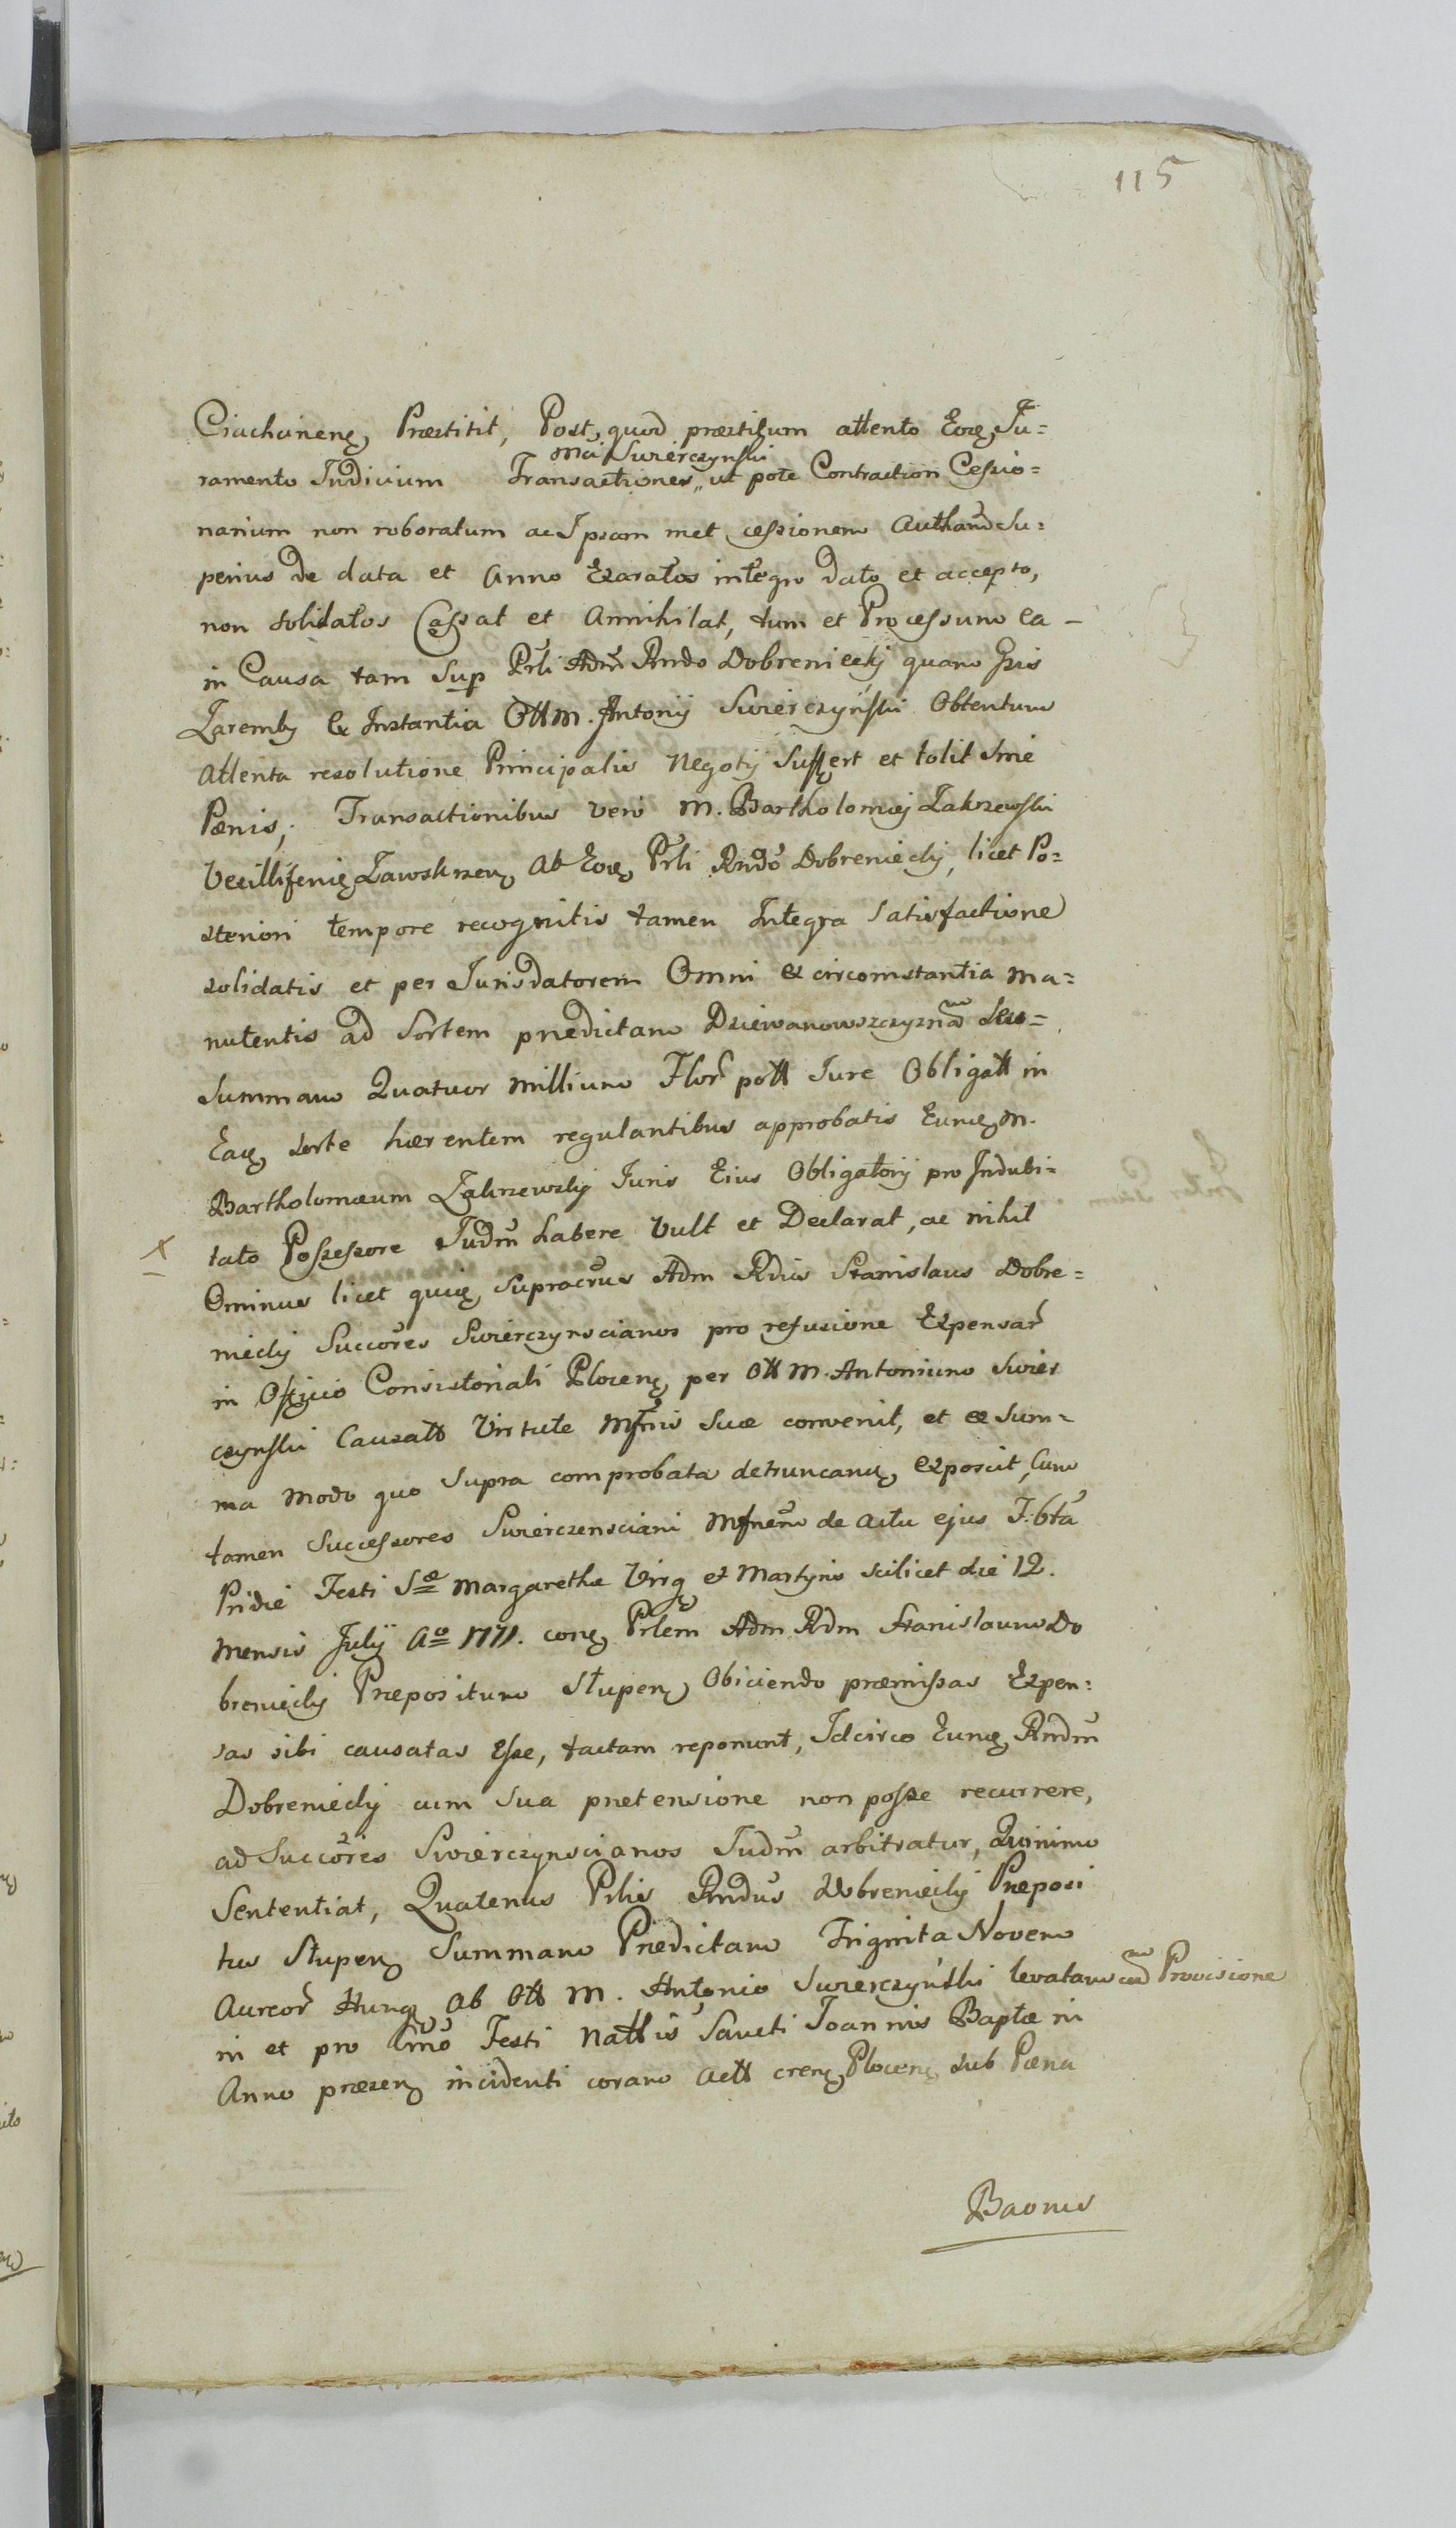 115
Ciachanenę Præstitit, Post quod præstitum attento Eoę Ju=
Mci Swierczynski
ramento Judicium Transactiones ut pote Contraction Cessio=
narium non roboratum ac Ipsam met cessionem Su=
perius de data et Anno Exaratos integro dato et accepto,
non solidatos Cassat et Annihilat, tum et Processum ea -
in Causa tam Sup Prli Adm Rndo Dobrenieckj quam Gsis
Zaremby Ex Instantia Ott M. Antonij Swierczynski Obtentum
Attenta resolutione Principalis Negotij Suffert et tolit Sine
Pænis, Transactionibus vero M. Bartholomæj Zakrzewski
Vexilliferię Zawskrzenę Ab Eoę Prli Rndo Dobrenieckj, licet Po=
steriori tempore recognitis tamen Integra Satisfactione
solidatis et per Jurisdatorem Omni ex circomstantia ma=
nutentis ad Sortem prædictam Dziewanowszczyzna Seu=
Summam Quatuor Millium Flor pott Jure Obligatt in
Eaę sorte hærentem regulantibus approbatis Eunę M.
Bartholomæum Zakrzewskj Juris Eius Obligatorij pro Indubi=
tato Possessore Judm habere Vult et Declarat, ac nihil
Ominus licet quię Supracrus Adm Rdus Stanislaus Dobre=
nieckj Succores Swierczynscianos pro refusione Expensar
in Officio Consistoriali Plocenę per Ott M. Antonium Swier
czynski Causatt Virtute Mfnis Suæ convenit, et ex Sum=
ma Modo quo Supra comprobata detruncanę exposcit, Cum
tamen Successores Swierczensciani Mfnem de Actu ejus F: 6ta
Pridie Festi Sæ Margarethæ Virg et Martyris scilicet die 12.
Mensis Julij Ao 1771. conę Prlem Adm Rdm Stanislaum Do
brenieckj Præpositum Stupenę Obiciendo præmissas Expen=
sas sibi causatas Esse, tactam reponunt, Idcirco Eunę Rndm
Dobrenieckj cum Sua prætensione non posse recurrere,
ad Succores Swierczynscianos Judm arbitratur, Quinimo
Sententiat, Quatenus Prlis Rndus Dobrenieckj Præposi
tus Stupenę Summam Prædictam Triginta Novem
Aureor Hungę Ab Ott M. Antonio Swierczynski levatam cum Provisione
in et pro Festi Nattis Sancti Joannis Baptæ in
Anno præsenę incidenti coram Actt crenę Plocenę sub Pæna
Baonis